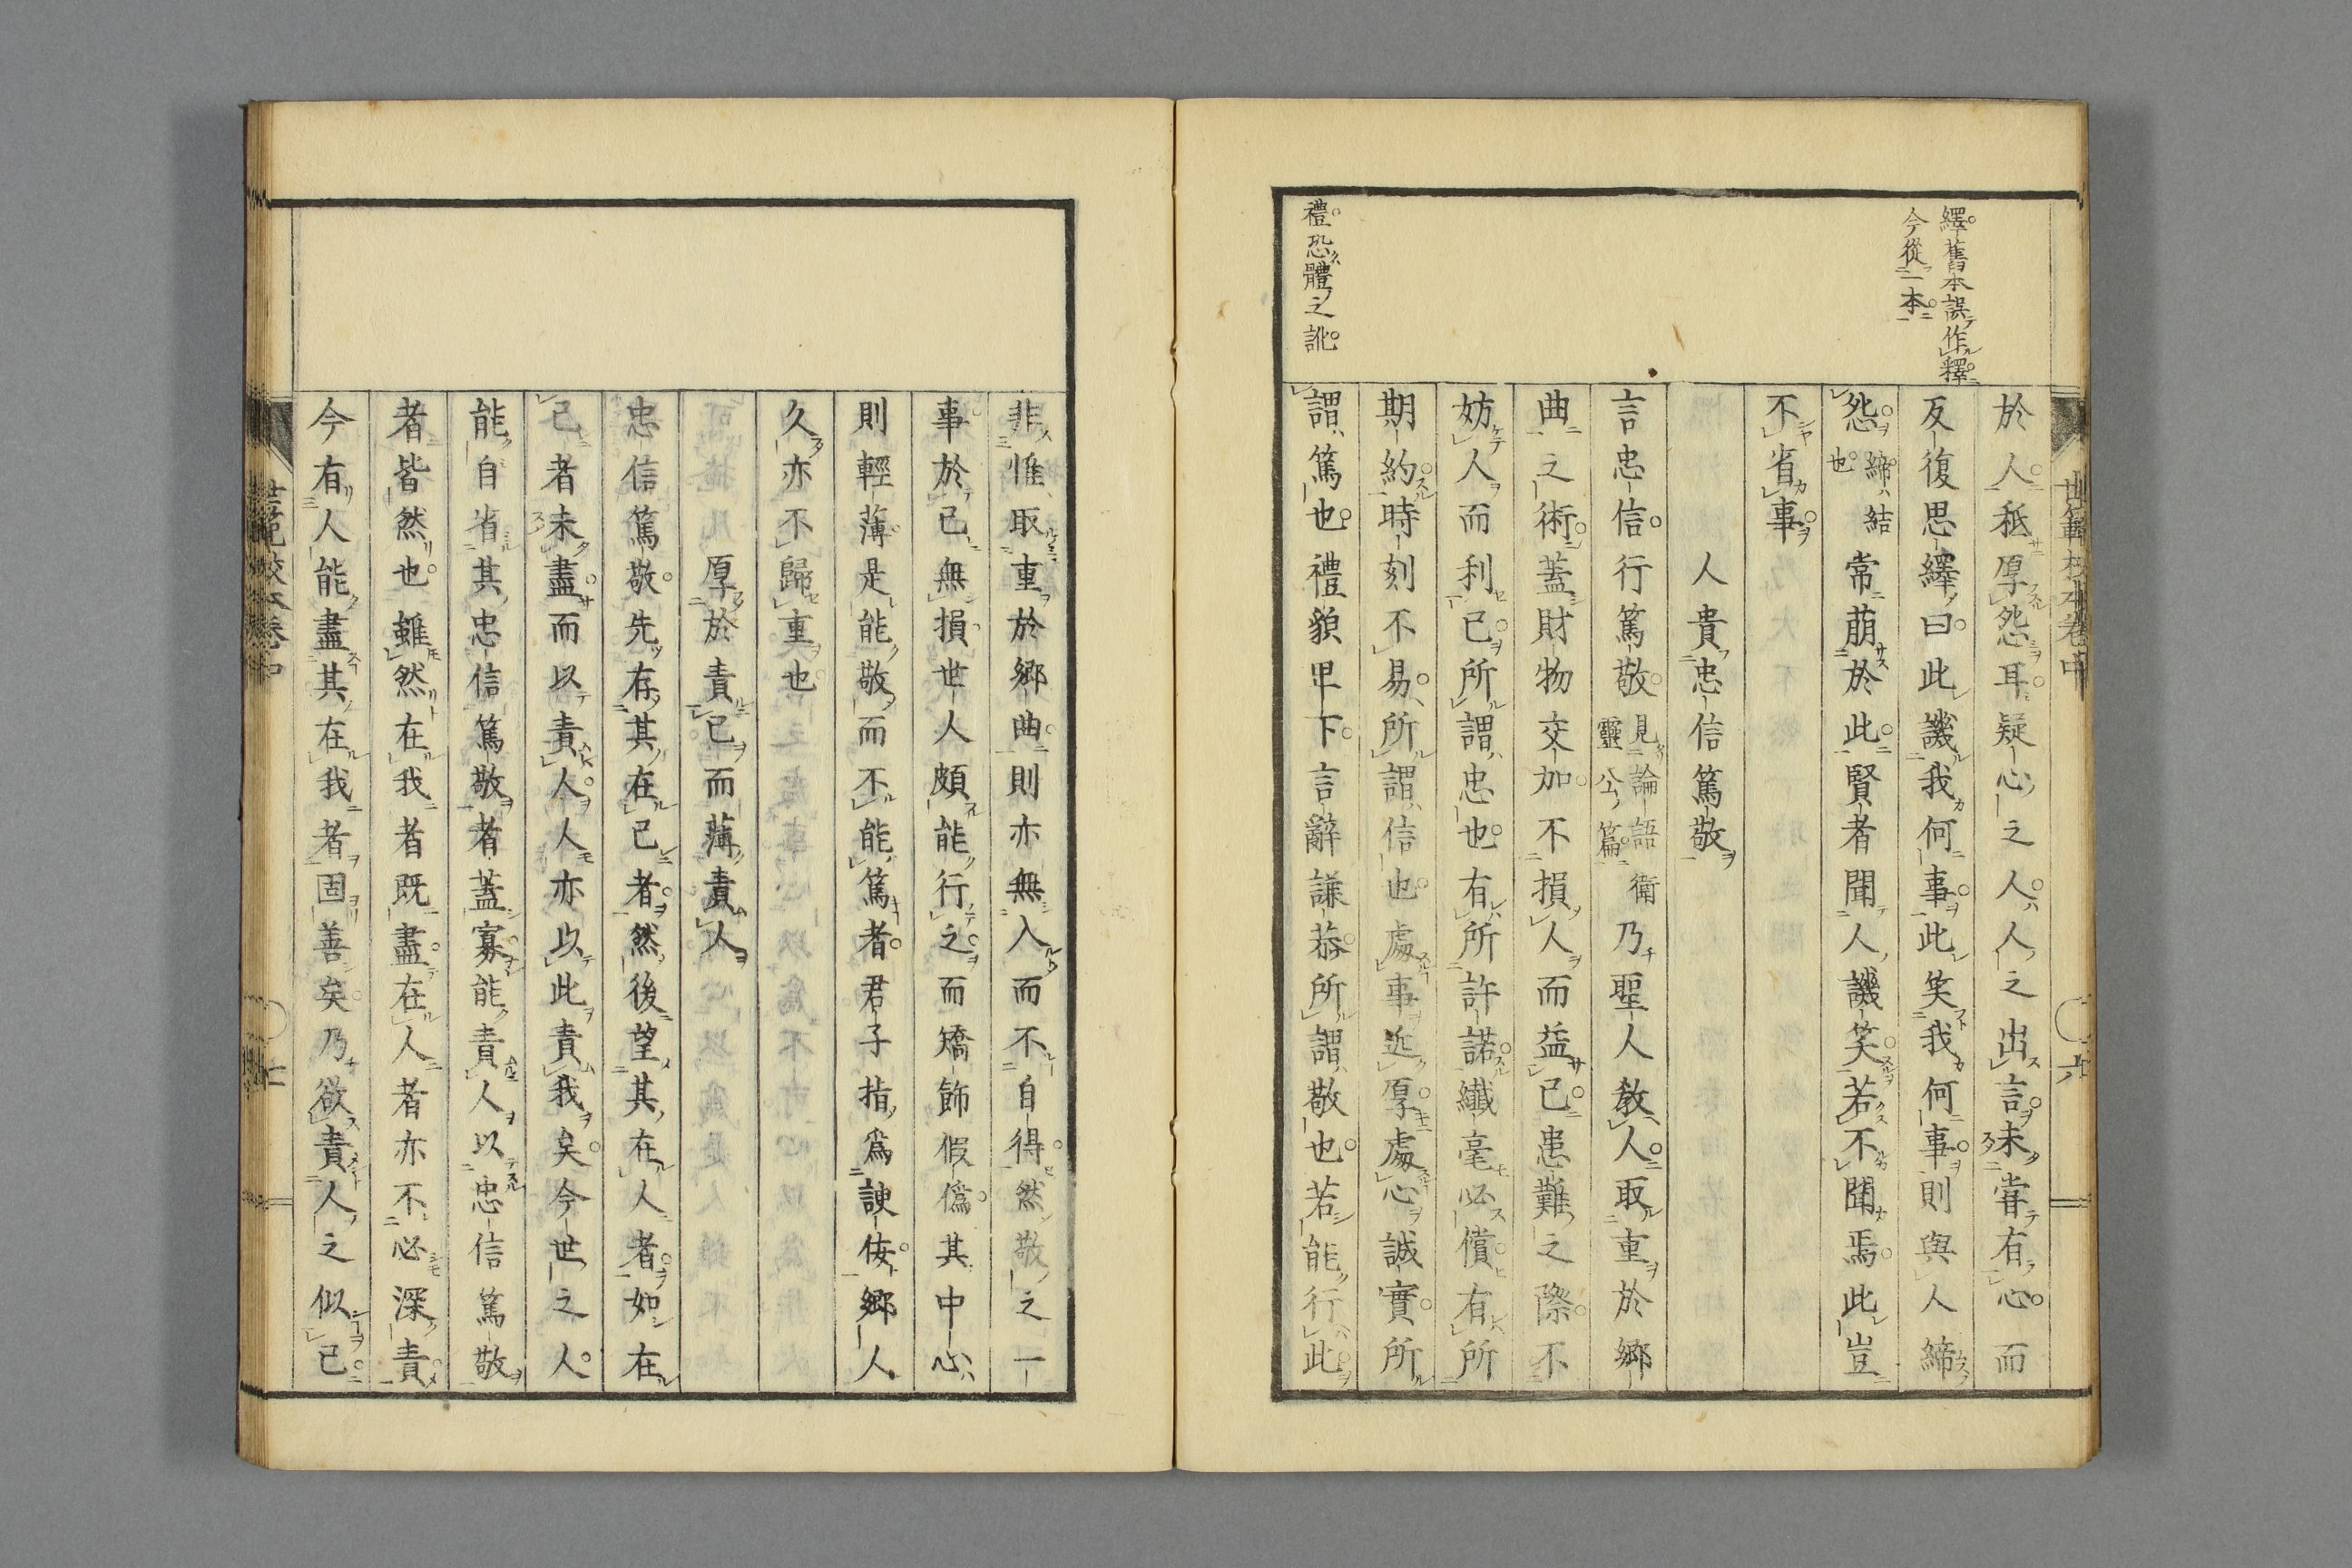 世範校本卷中
六
繹舊本誤作釋
今從一本
於人秖厚怨耳疑心之人人之出言未嘗有心而
反復思繹曰此譏我何事此笑我何事則與人締
怨締結也常萌於此賢者聞人譏笑若不聞焉此豈
不省事
人貴忠信篤敬
言忠信行篤敬見論語衛靈公篇乃聖人教人取重於郷
曲之術蓋財物交加不損人而益己患難之際不
妨人而利己所謂忠也有所許諾纖毫必償有所
期約時刻不易所謂信也處事近厚處心誠實所
禮恐體之訛
謂篤也禮貌卑下言辭謙恭所謂敬也若能行此
非惟取重於郷曲則亦無入而不自得然敬之一
事於己無損世人頗能行之而矯飾假僞其中心
則輕薄是能敬而不能篤者君子指爲諛佞郷人
久亦不歸重也
厚於責己而薄責人
忠信篤敬先存其在己者然後望其在人者如在
己者未盡而以責人人亦以此責我矣今世之人
能自省其忠信篤敬者蓋寡能責人以忠信篤敬
者皆然也雖然在我者既盡在人者亦不必深責
今有人能盡其在我者固善矣乃欲責人之似己